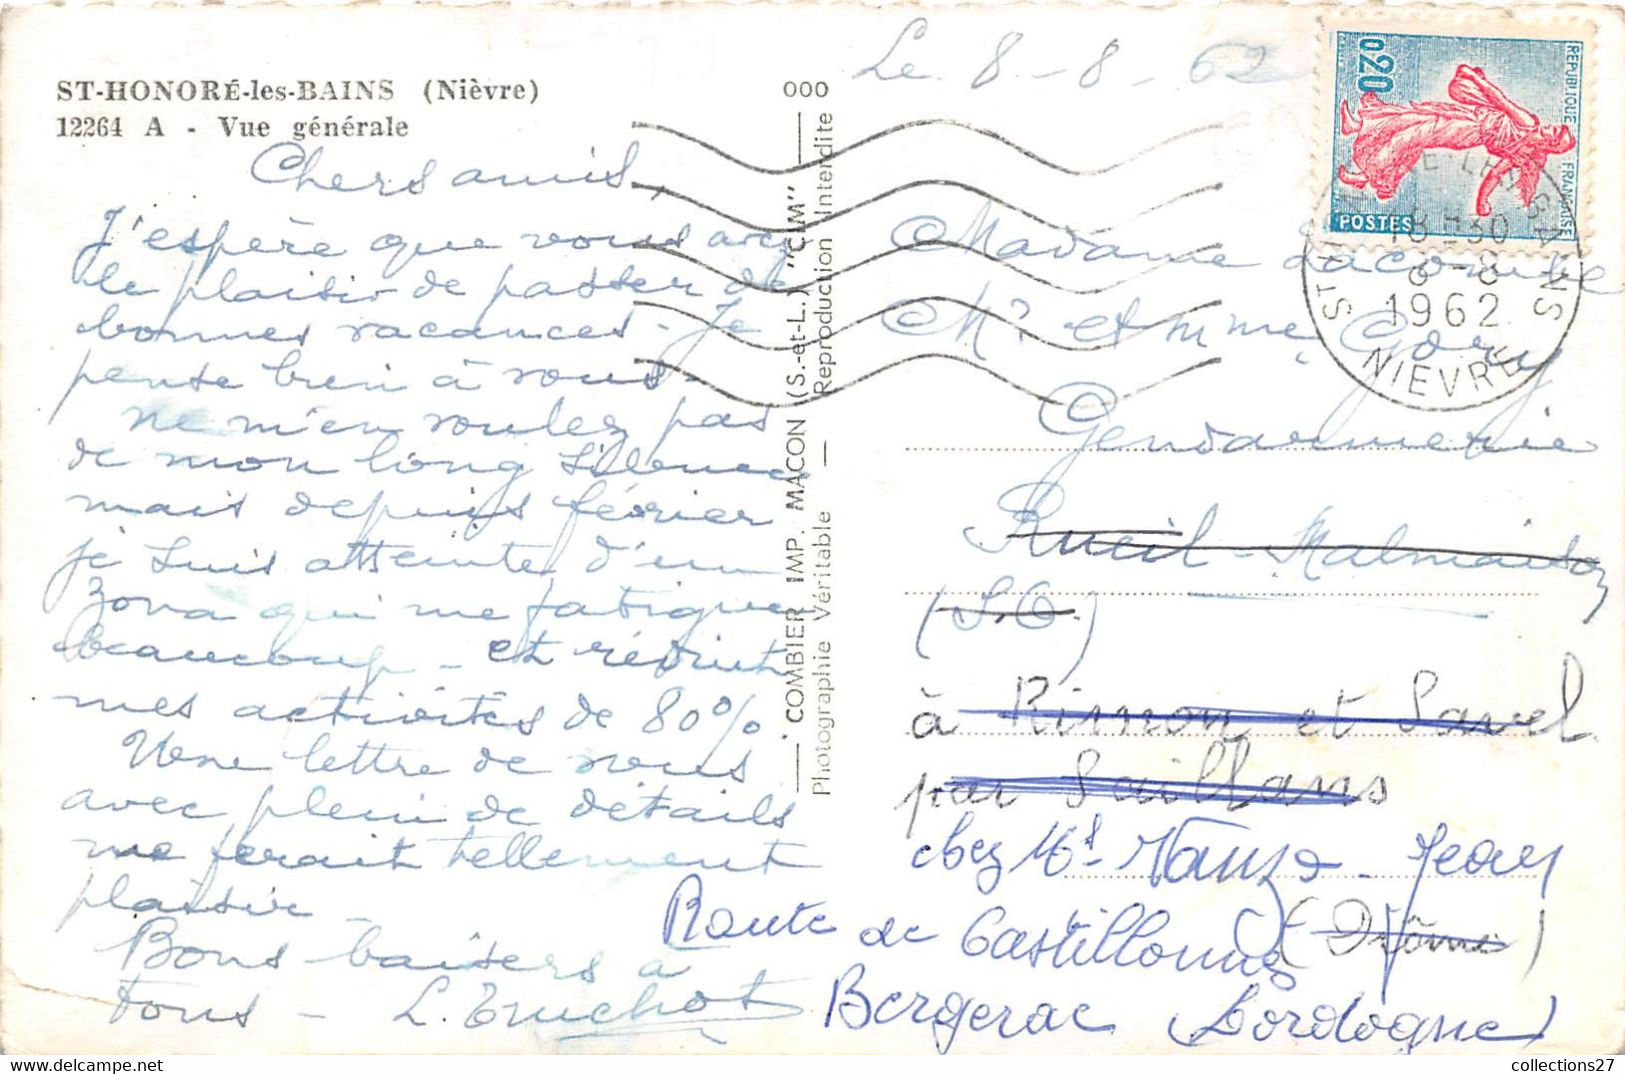 ST-HONORÉ-les-BAINS (Nièvre)
12264 A - Vue générale
Chers amis,
J'espère que vous avez
le plaisir de passer de
bonnes vacances - Je
pense bien à vous -
Ne m'en voulez pas
de mon long silence
mais depuis février
je suis atteinte d'un
zona qui me fatigue
beaucoup - et réduit
mes activités de 80%
Une lettre de vous
avec plein de détails
me ferait tellement
plaisir
Bons baisers à
tous - L. Truchot
000
COMBIER IMP. MACON (S.-et-L.) "CIM"
Photographie Véritable — Reproduction Interdite
Le 8-8-62
REPUBLIQUE FRANÇAISE
0,20
POSTES
18H30
8-8
1962
NIEVRE
Madame Lacombe
Mr et Mme Gory
Gendarmerie
Rueil-Malmaison
(S.O)
à Rimon et Savel
par Saillans
(Drôme)
chez Mr Jean
Route de Castillonnès
Bergerac Dordogne
collections27